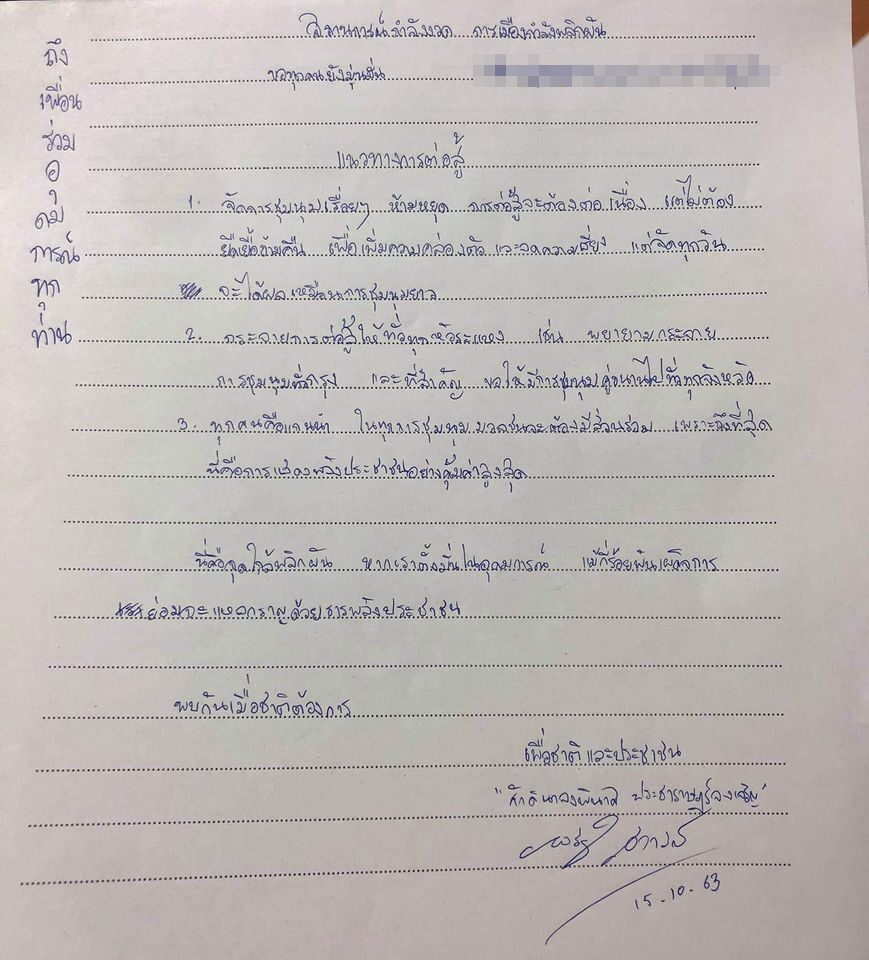 ถึงเพื่อนร่วมอุดมการณ์ทุกท่าน
สถานการณ์กำลังงวด การเมืองกำลังพลิกผัน
ขอทุกคนยังมุ่นมั่น
แนวทางการต่อสู้
1. จัดการชุมนุมเรื่อยๆ ห้ามหยุด การต่อสู้จะต้องต่อเนื่อง แต่ไม่ต้อง
ยืดเยื้อข้ามคืน เพื่อเพิ่มความคล่องตัว และลดความเสี่ยง แต่จัดทุกวัน
จะได้ผลเหมือนการชุมนุมยาว
2. กระจายการต่อสู้ให้ทั่วทุกหัวระแหง เช่น พยายามกระจาย
การชุมนุมทั่วกรุง และที่สำคัญ ขอให้มีการชุมนุมคู่ขนานไปทั่วทุกจังหวัด
3. ทุกคนคือแกนนำ ในทุกการชุมนุม มวลชนจะต้องมีส่วนร่วม เพราะถึงที่สุด
นี่คือการแสดงพลังประชาชนอย่างคุ้มค่าสูงสุด
นี่คือจุดใกล้พลิกผัน หากเราตั้งมั่นในอุดมการณ์ แม้กี่ร้อยพันเผด็จการ
ย่อมจะแหลกราญด้วยธารพลังประชาชน
พบกันเมื่อชาติต้องการ
เพื่อชาติและประชาชน
"ศักดินาจงพินาศ ประชาราษฎร์จงเจริญ"
15.10.63